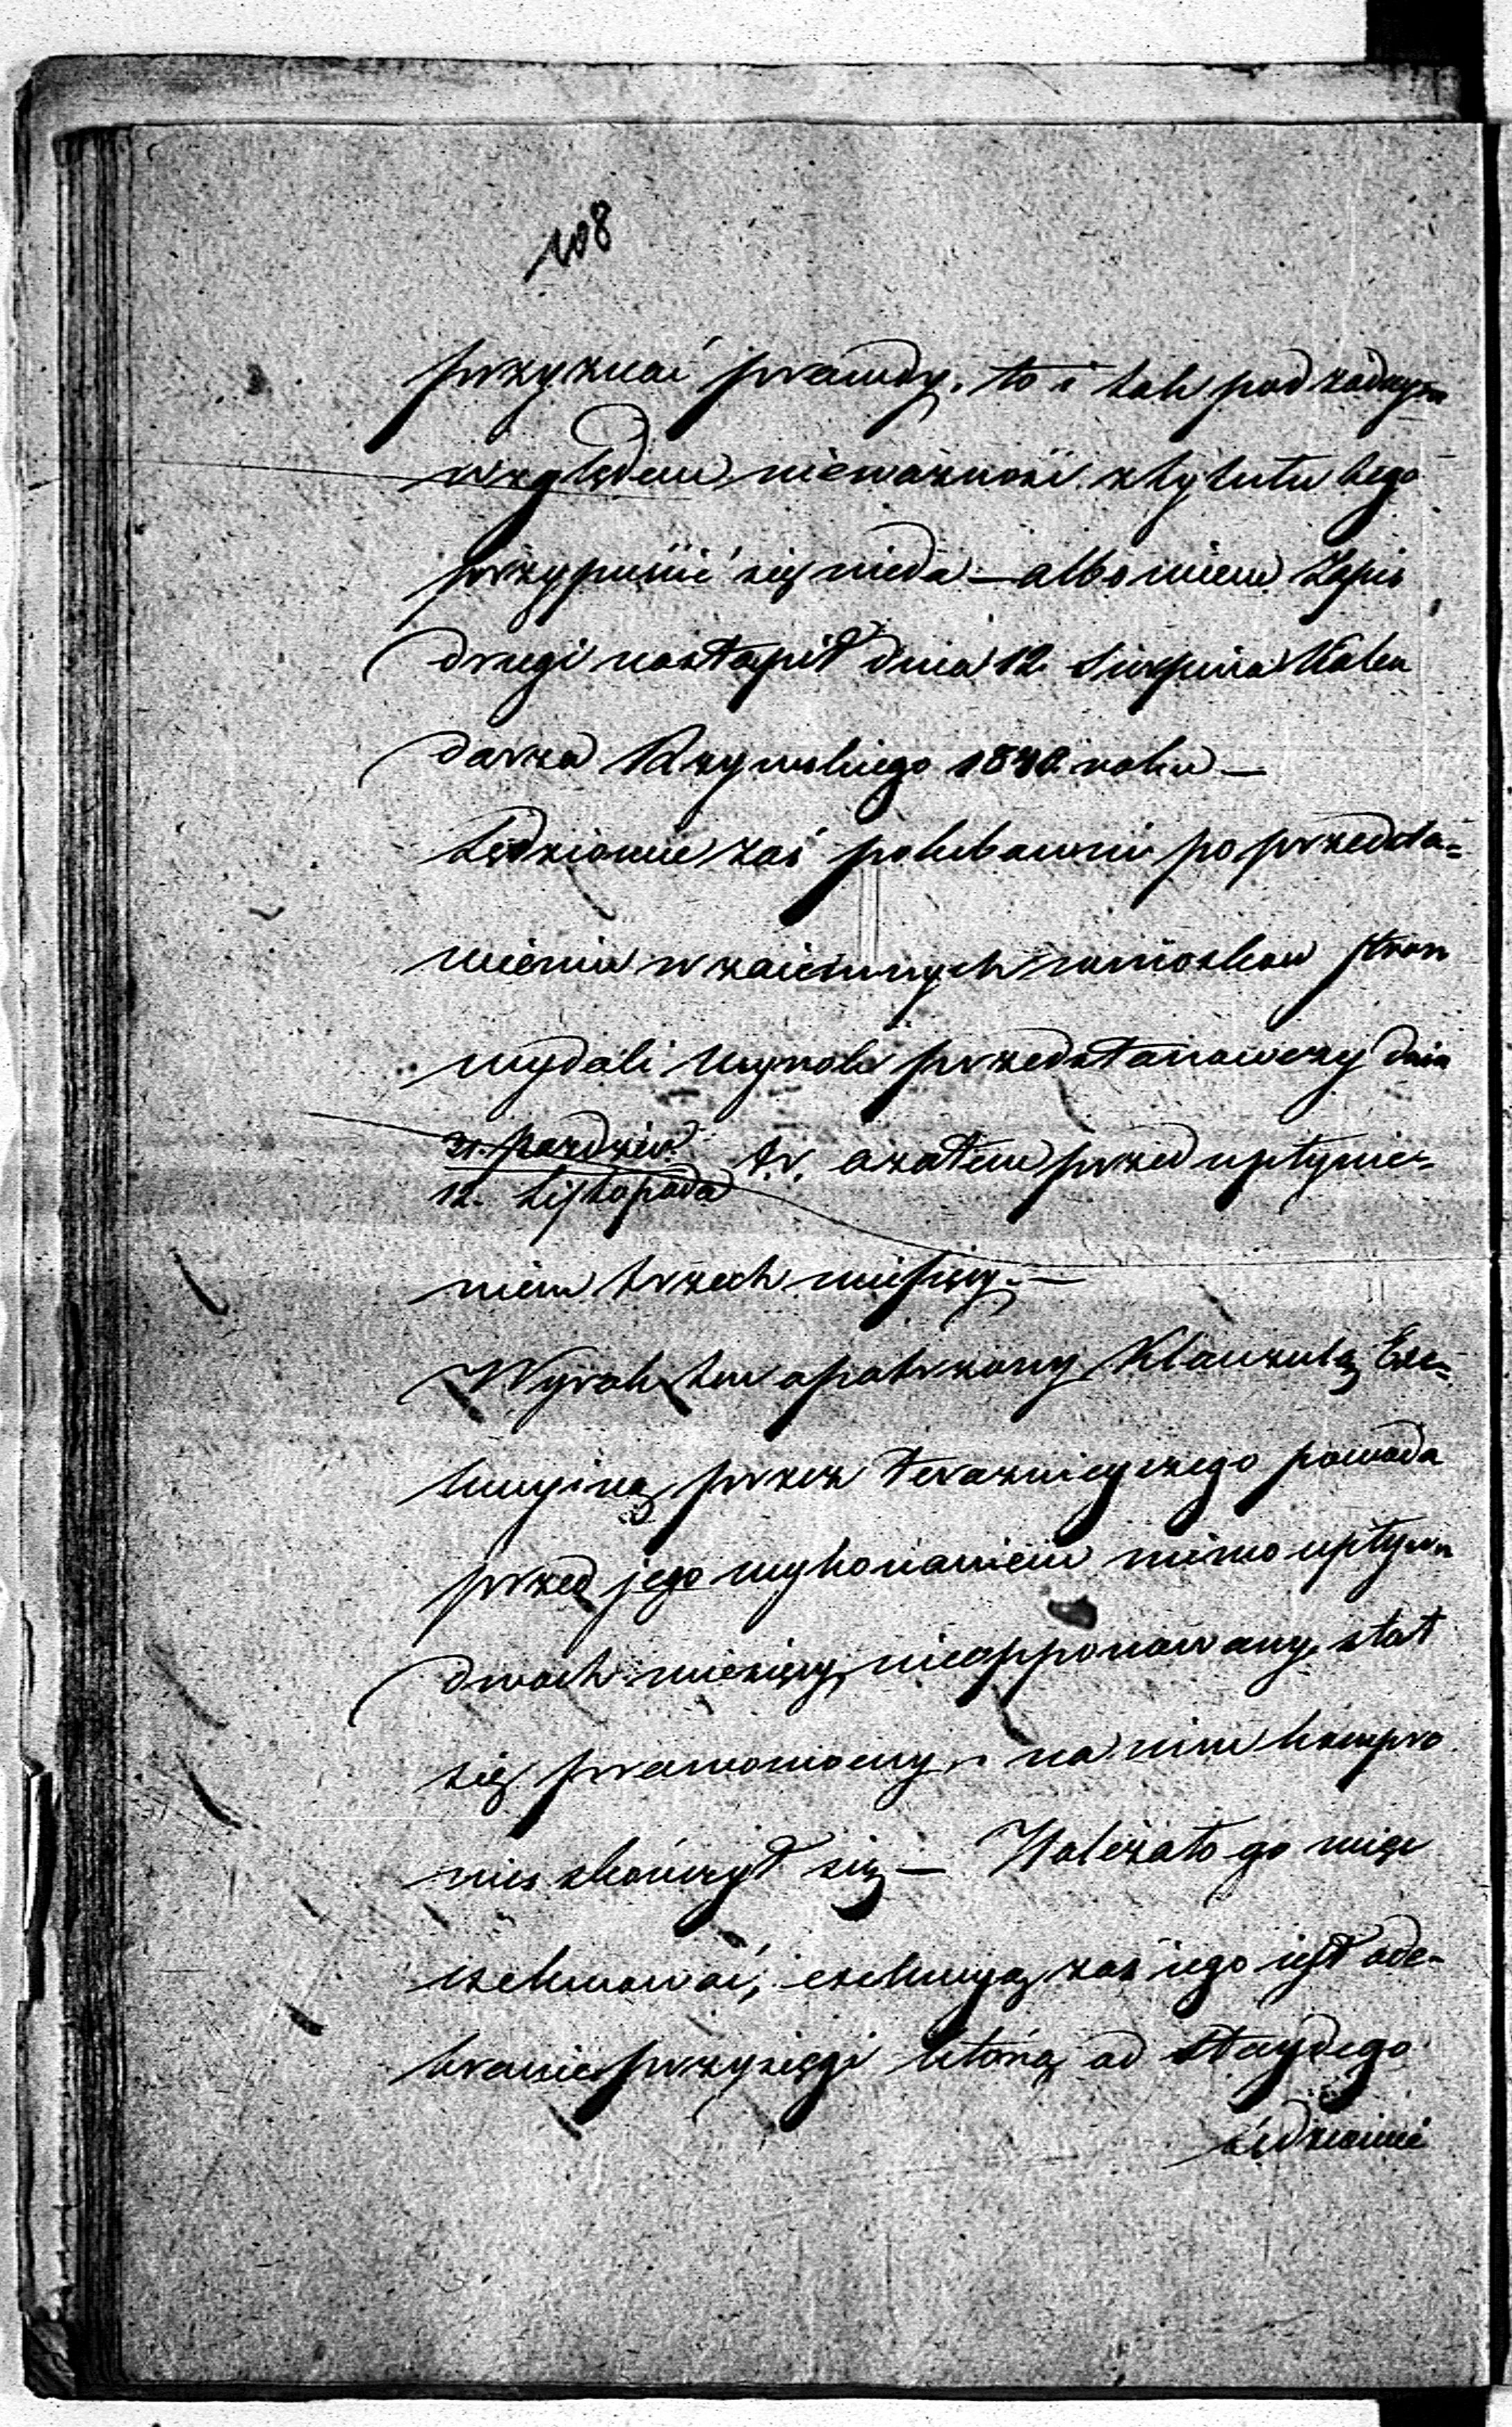 108
przyznać prawdy, to i tak pod żadnym
względem nieważność z tytułu tego
przypuścić się nieda — albowiem Zapis
drugi nastąpił dnia 12 Sierpnia Kalen
darza Rzymskiego 1840 roku —
Sędziowie zaś polubowni po przedsta=
wieniu wzaiemnych wniosków stron
wydali wyrok przedstanowczy dnia
31. Paździer. t.r. a zatem przed upłynie=
12. Listopada
niem trzech miesięcy. —
Wyrok ten opatrzony Klauzulą Exe=
kucyiną przez teraznieyszego powoda
przed jego wykonaniem mimo upływu
dwoch miesięcy nieopponowany, stał
się prawomocny, i na nim kompro
mis skończył się — Należało go więc
exekwować, exekucyą zaś iego iest ode=
branie przysięgi którą od
Sędziowie